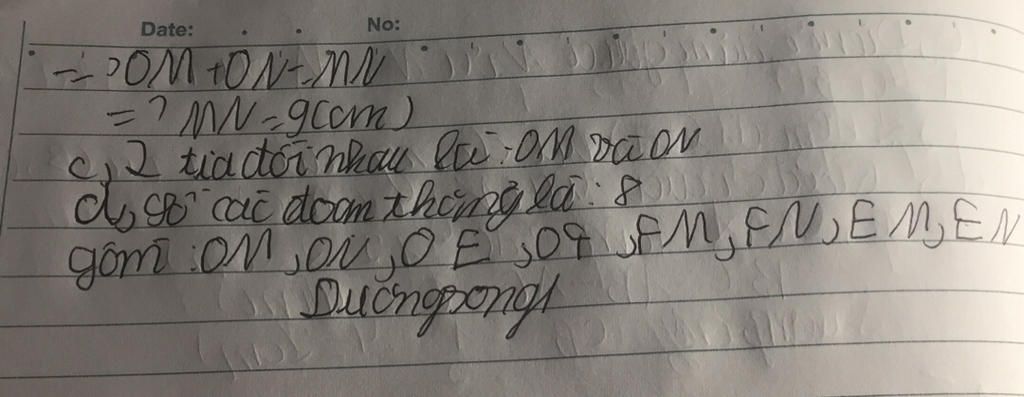 Date: No:
=> OM + ON = MN
=> MN = 9(cm)
c, 2 tia đối nhau là: OM và ON
d, số các đoạn thẳng là: 8
gồm: OM, ON, OE, OF, FM, FN, EM, EN